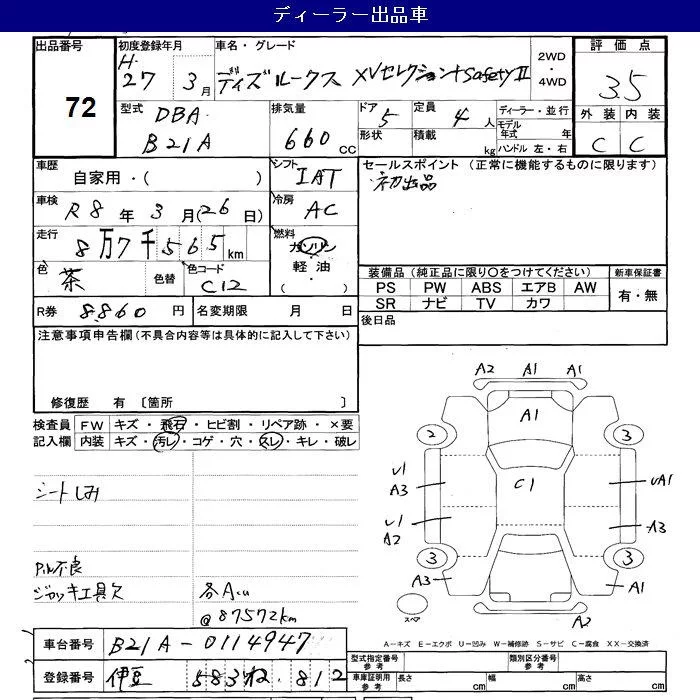 ディーラー出品車
出品番号 72
初度登録年月 H 27 3月
車名・グレード ディズルークス XVセレクションSafetyII
2WD・4WD
評価点 3.5
外装 C 内装 C
型式 DBA B21A
排気量 660 cc
ドア 5 形状
定員 4人 積載 kg
ディーラー・並行
モデル年式 年
ハンドル 左・右
車歴 自家用・( )
シフト IAT
セールスポイント (正常に機能するものに限ります)
初出品
車検 R8年3月(26日)
冷房 AC
走行 8万7千565km
燃料 ガソリン 軽油・( )
色 茶 色替 色コード C12
装備品 (純正品に限り○をつけてください)
新車保証書
PS PW ABS エアB AW
有・無
SR ナビ TV カワ
R券 8860円
名変期限 月 日
後日品
注意事項申告欄 (不具合内容等は具体的に記入して下さい)
修復歴 有 〔箇所 〕
検査員記入欄
FW キズ・飛石・ヒビ割・リペア跡・×要
内装 キズ・汚レ・コゲ・穴・スレ・キレ・破レ
シートしみ
ジャッキ工具欠
各A
@87572km
A2 A1 A1
A1
2 3
U1
A3
C1
A3
U1
A2
3 3
A3 A1
スペア
A2
A-キズ E-エクボ U-凹み W-補修跡 S-サビ C-腐食 XX-交換済
車台番号 B21A-0114947
登録番号 伊豆 583 812
型式指定番号 参考
類別区分番号 参考
車庫証明用 参考 長さ cm 幅 cm 高さ cm